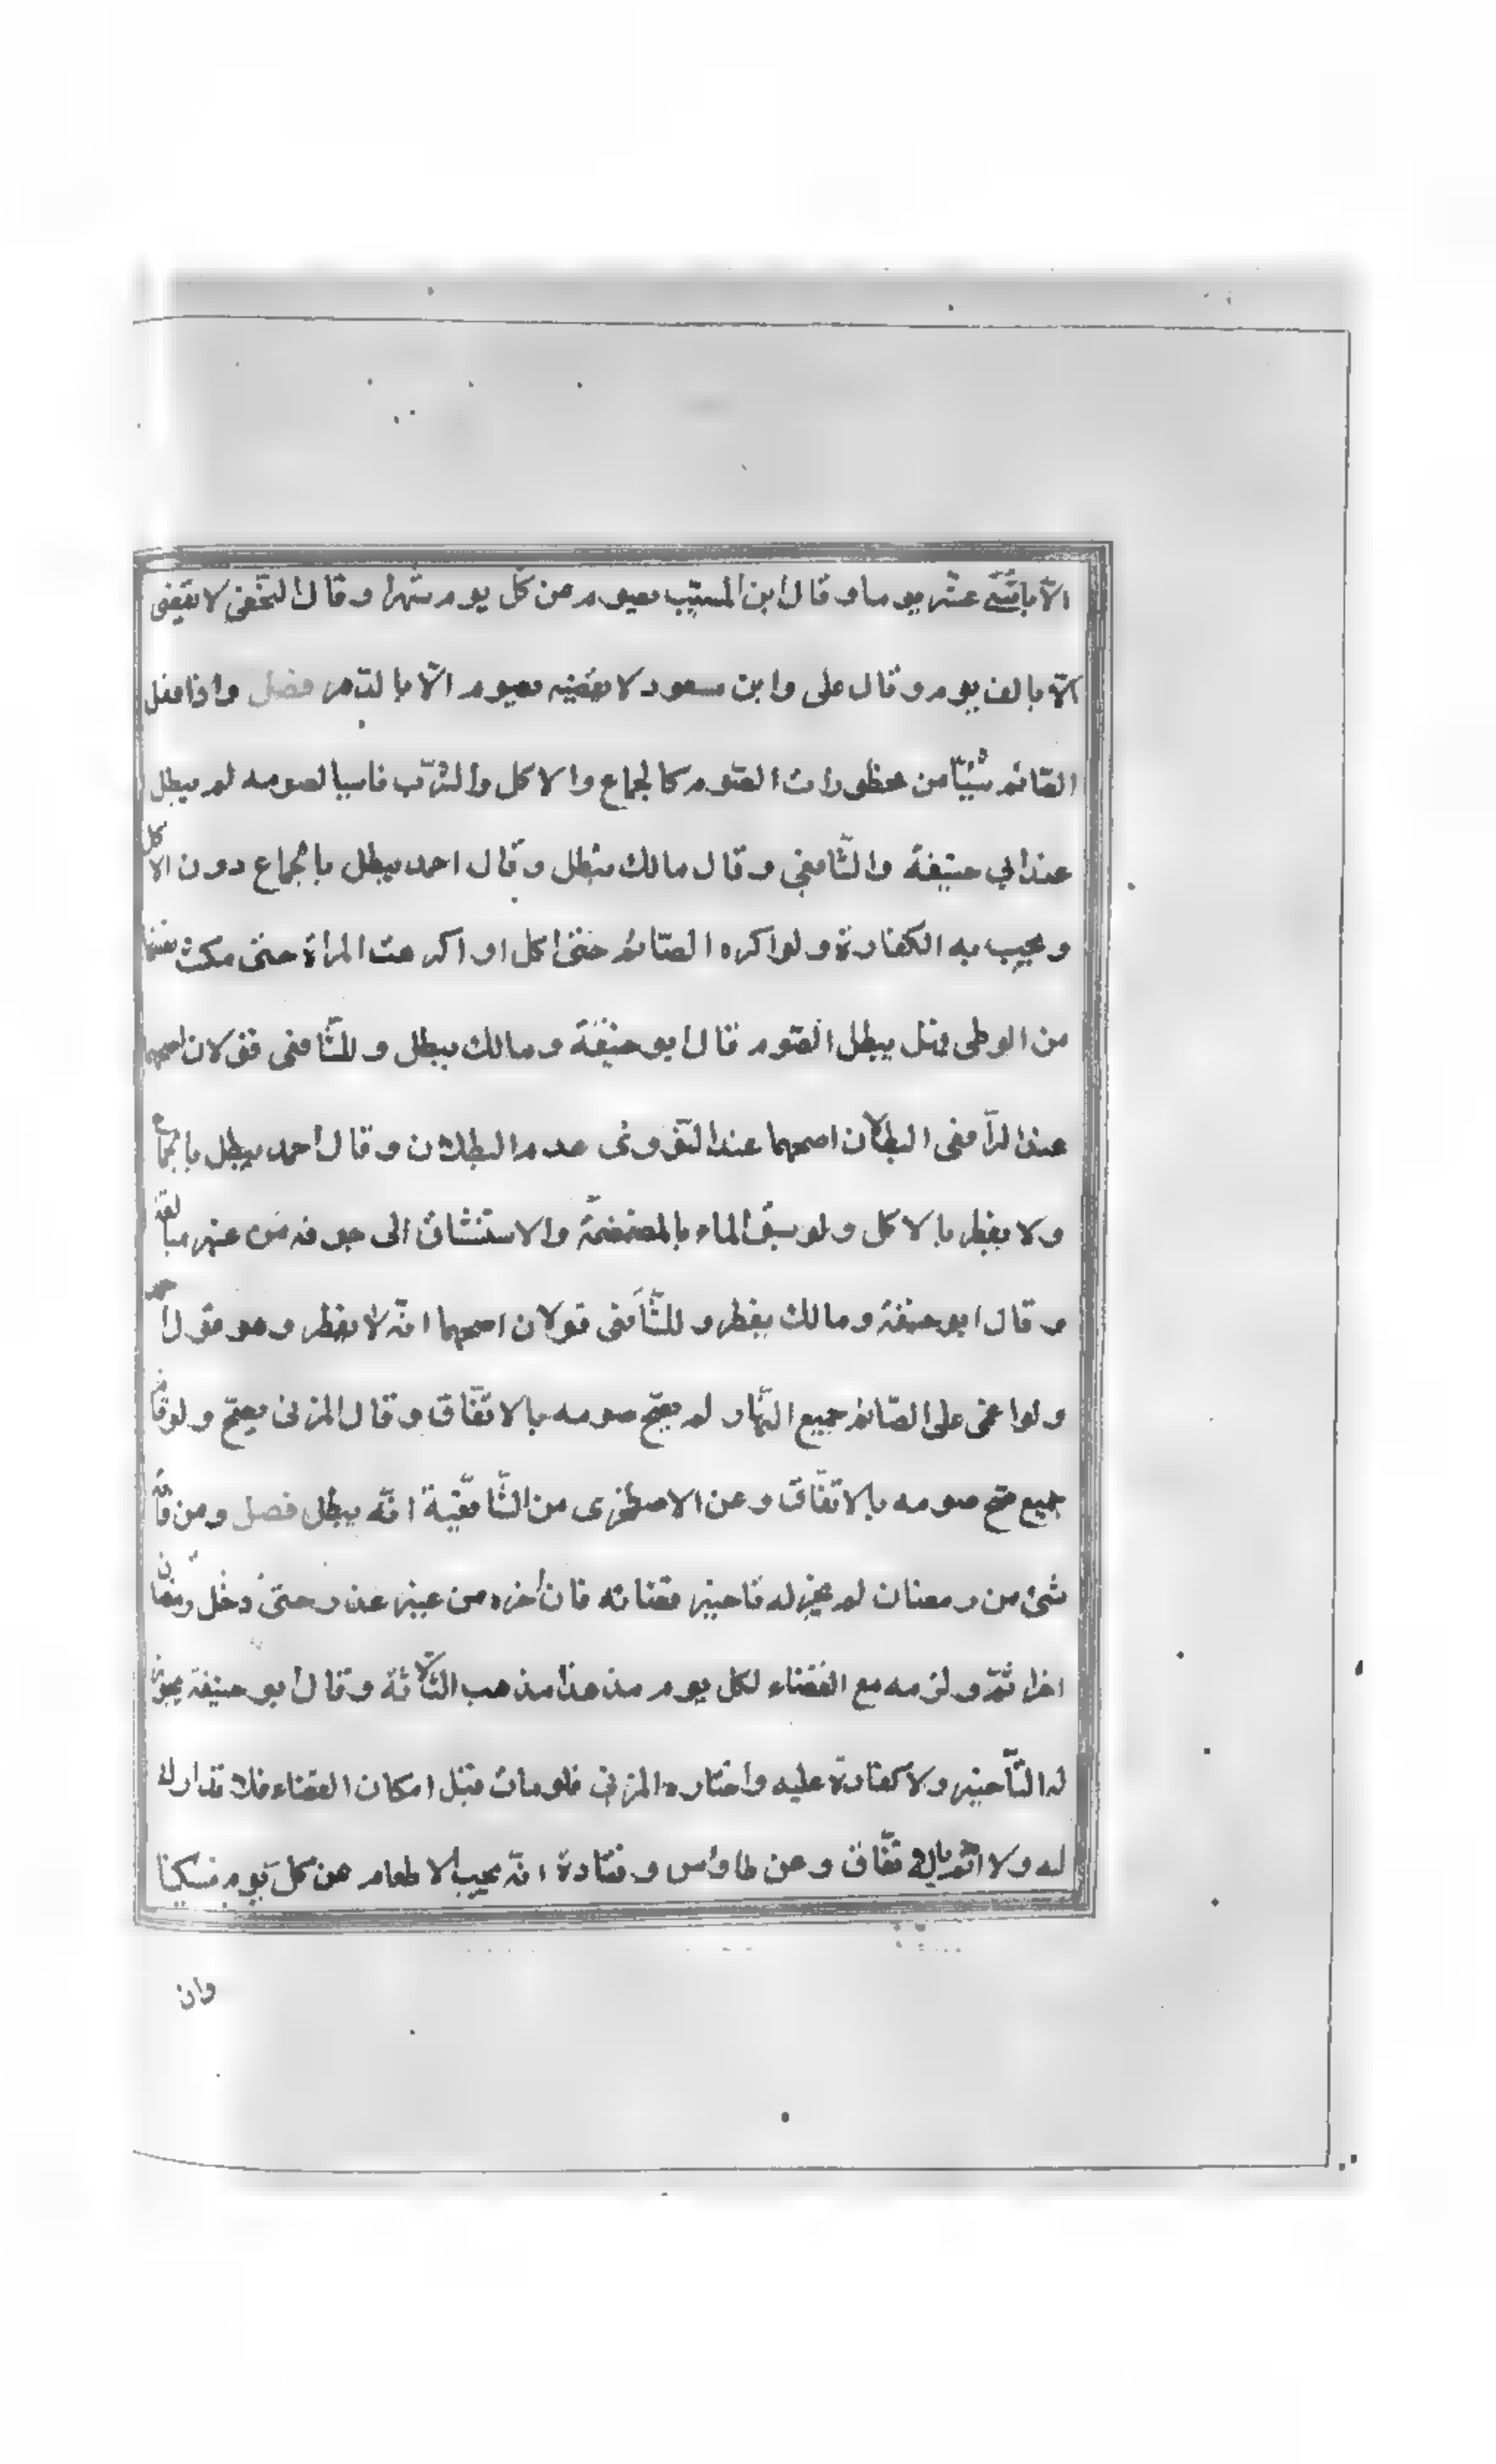 الّا باثنى عشر يوما وقال ابن المسيّب يصوم من كلّ يوم شهرا وقال النخّعى لا يقضى
الّا بالف يوم وقال على وابن مسعود لا يقضيه بصوم الّا بالدّهر فصل واذا فعل
الصّائم شيئا من محظورات الصّوم كالجماع والاكل والشّرب ناسيا لصومه لم يبطل
عند ابى حنيفة والشّافعى وقال مالك يبطل وقال احمد يبطل بالجماع دون الاكل
ويجب به الكفارة ولو اكره الصّائم حتى اكل او اكرهت المراة حتى مكنت
من الوطى فهل يبطل الصّوم قال ابو حنيفة ومالك يبطل وللشّافعى قولان اصحهما
عند الرّافعى البطلان اصحهما عند النّووى عدم البطلان وقال احمد يبطل بالجماع
ولا يفطر بالاكل ولو سبق الماء بالمضمضة والاستنشاق الى جوفه من غير مبالغة
وقال ابو حنيفة ومالك يفطر وللشّافعى قولان اصحهما انّه لا يفطر وهو قول احمد
ولو اغمى على الصّائم جميع النّهار لم يصحّ صومه بالاتّفاق وقال المزنى يصحّ ولو نام
جميع صحّ صومه بالاتّفاق وعن الاصطخرى من الشّافعيّة انّه يبطل فصل ومن فاته
شئ من رمضان لم يجز له تاخير قضائه فان اخره من غير عذر حتى دخل رمضان
اخر اثم ولزمه مع القضاء لكل يوم مد هذا مذهب الثلاثة وقال ابو حنيفة يجوز
له التّأخير ولا كفارة عليه واختاره المزنى فلو مات قبل امكان القضاء فلا تدارك
له ولا اثم بالاتّفاق وعن طاوس وقتادة انّه يجب الاطعام عن كلّ يوم مسكينا
وان